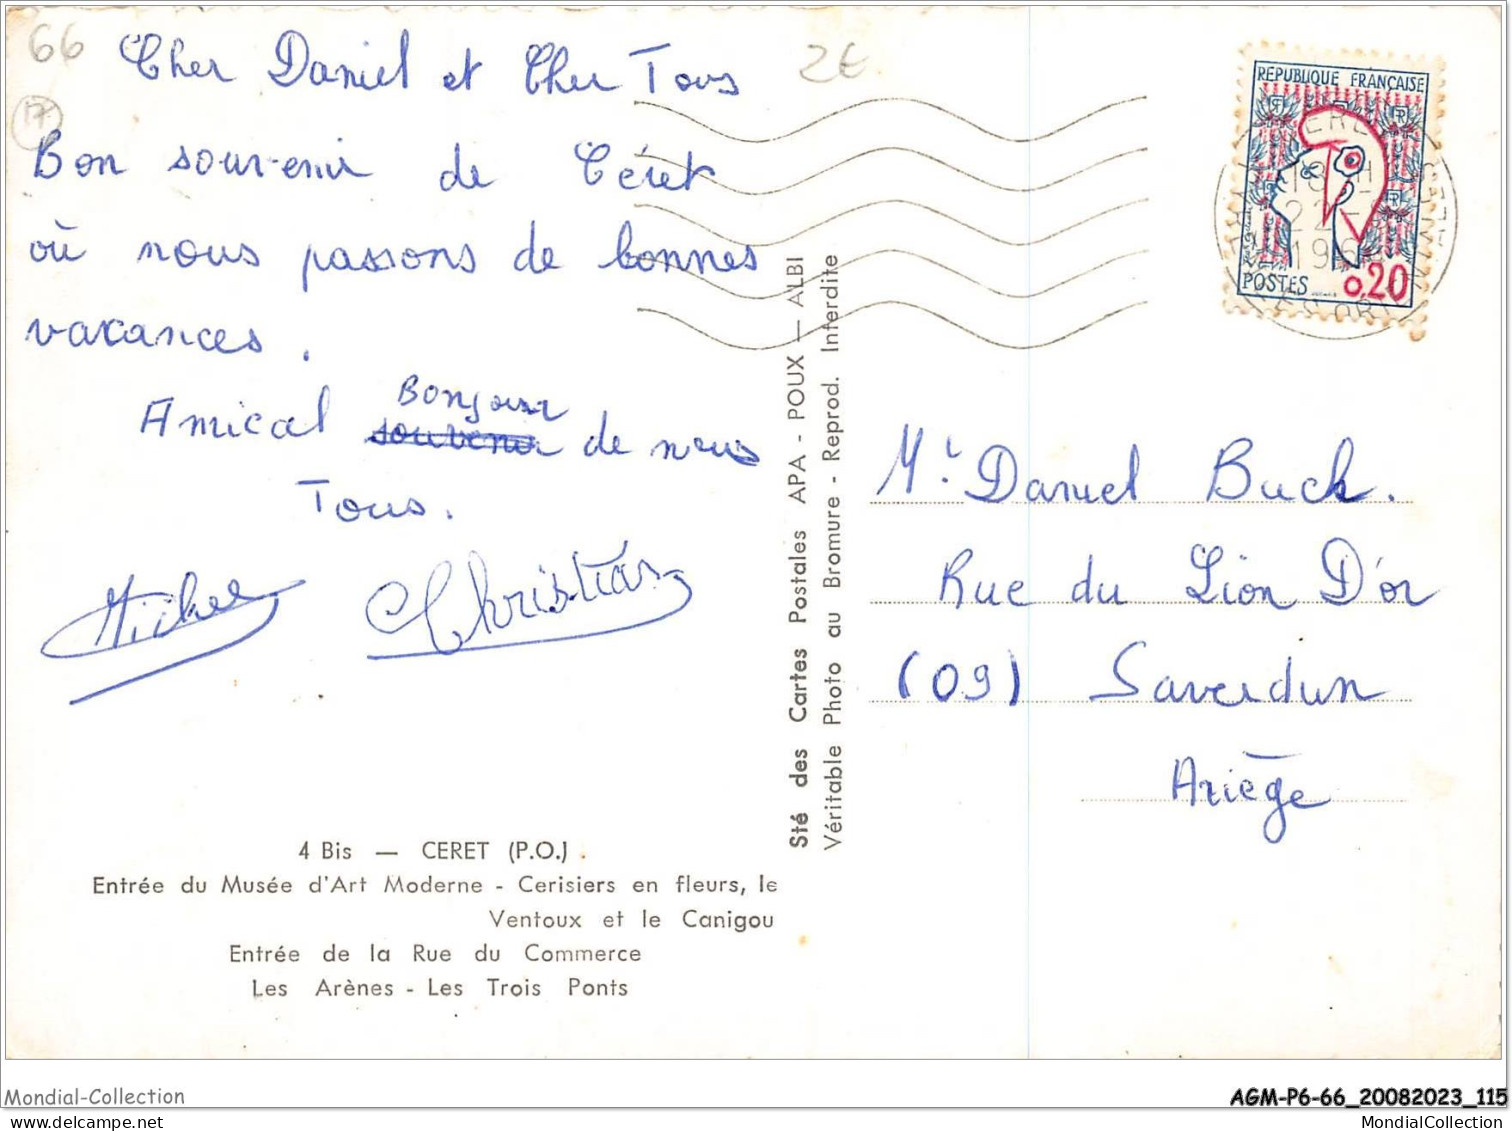 66
2€
17
Cher Daniel et Cher Tous
Bon souvenir de Céret
où nous passons de bonnes
vacances.
Amical Bonjour de nous
Tous.
Michel Christian
4 Bis — CERET (P.O.)
Entrée du Musée d'Art Moderne - Cerisiers en fleurs, le
Ventoux et le Canigou
Entrée de la Rue du Commerce
Les Arènes - Les Trois Ponts
Sté des Cartes Postales APA - POUX — ALBI
Véritable Photo au Bromure - Reprod. Interdite
RÉPUBLIQUE FRANÇAISE
POSTES 0,20
Mr Daniel Buck.
Rue du Lion D'or
(09) Saverdun
Ariège
Mondial-Collection
AGM-P6-66_20082023_115
MondialCollection